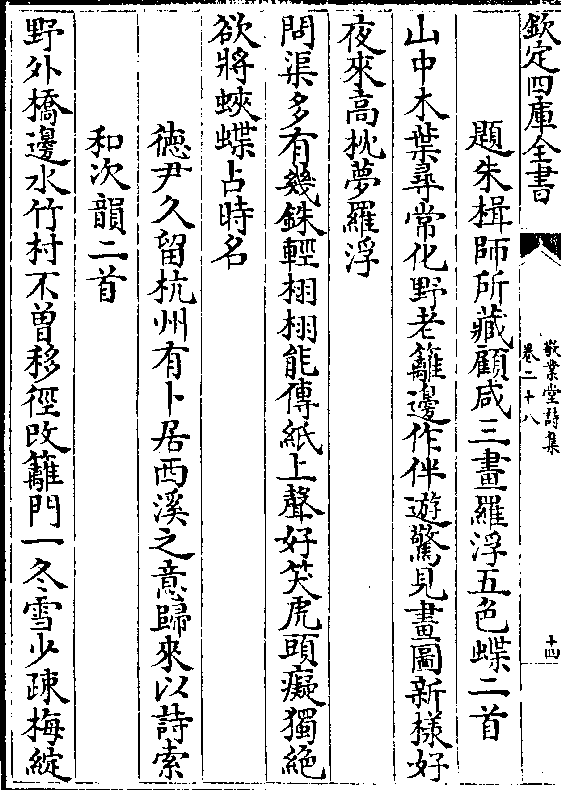 欽定四庫全書
敬業堂詩集
卷二十八
十四
題朱楫師所藏顧咸三畫羅浮五色蝶二首
山中木葉尋常化野老籬邊作伴遊驚見畫圖新様好
夜來高枕夢羅浮
問渠多有幾銖輕栩栩能傳紙上聲好笑虎頭癡獨絶
欲將蛺蝶占時名
徳尹久留杭州有卜居西溪之意歸來以詩索
和次韻二首
野外橋邊水竹村不曽移徑改籬門一冬雪少疎梅綻